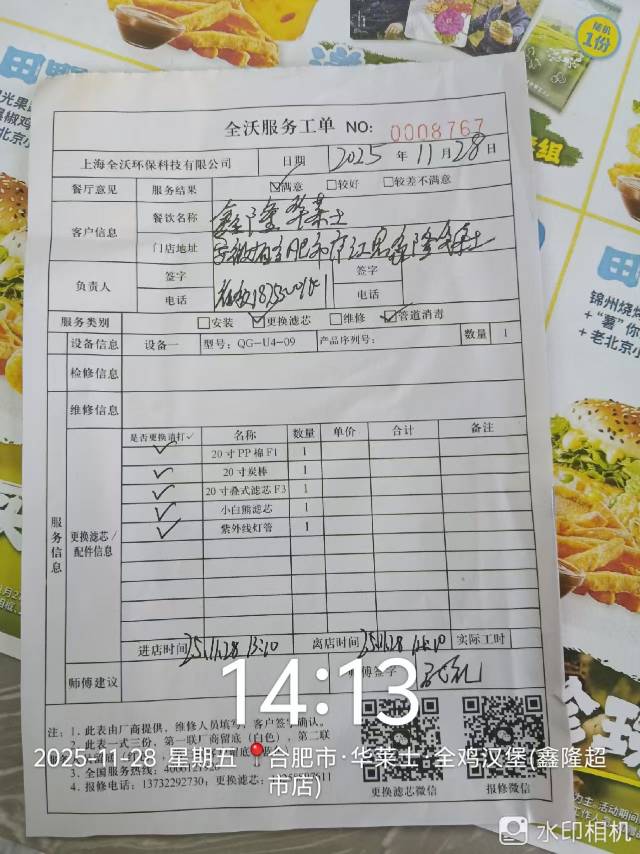 随机
1份
全沃服务工单 NO: 0008767
上海全沃环保科技有限公司 日期 2025 年 11 月 28 日
餐厅意见 服务结果 ☑满意 □较好 □较差不满意
客户信息 餐饮名称 鑫隆华莱士
门店地址
负责人 签字 签字
电话 电话
服务类别 □安装 ☑更换滤芯 □维修 ☑管道消毒
设备信息 设备一 型号: QG-U4-09 产品序列号: 数量 1
检修信息
维修信息
服务信息
更换滤芯/配件信息
是否更换请打✓ 名称 数量 单价 合计 备注
✓ 20寸PP棉F1 1
✓ 20寸炭棒 1
✓ 20寸叠式滤芯F3 1
✓ 小白熊滤芯 1
✓ 紫外线灯管 1
进店时间 25.11.28 13:10 离店时间 25.11.28 14:10 实际工时
师傅建议 师傅签字
14:13
注: 1. 此表由厂商提供, 维修人员填写, 客户签字确认。
2. 此表一式三份, 第一联厂商留底 (白色), 第二联
2025-11-28 星期五 合肥市·华莱士·全鸡汉堡(鑫隆超市店)
3. 全国服务热线:
4. 报修电话: 13732292730; 更换滤芯:
更换滤芯微信 报修微信
水印相机
锦州烧烤
+ “薯”你
+ 老北京小